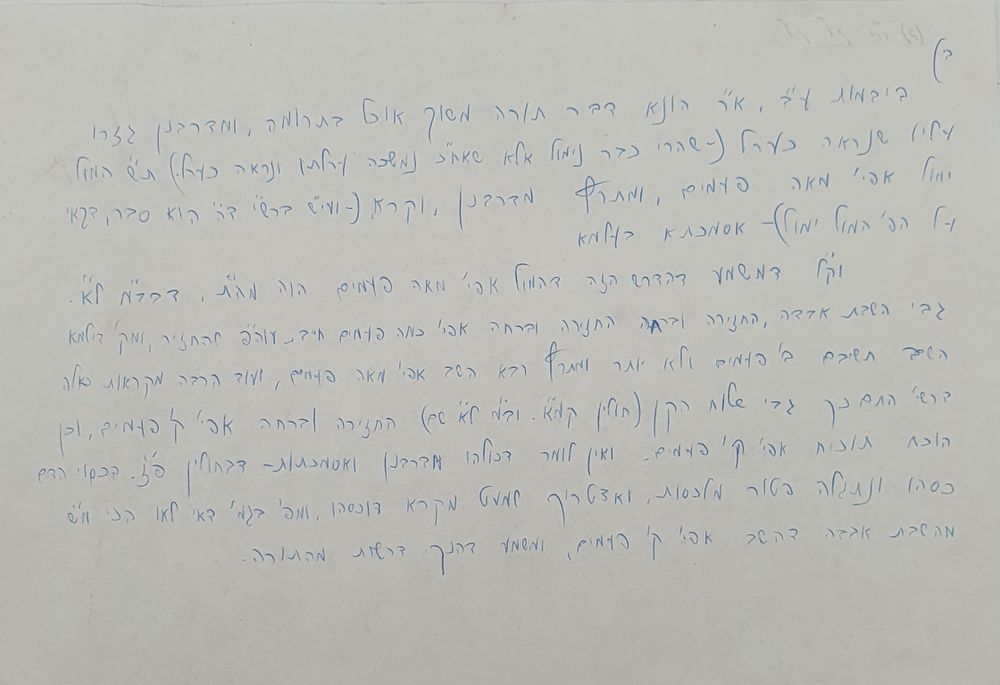 ב)
ביבמות ע"ב. א"ר הונא דבר תורה משוך אוכל בתרומה, ומדרבנן גזרו
עליו שנראה כערל (-שהרי כבר נימול אלא שאח"כ נמשכה ערלתו ונראה כערל) ת"ש המול
ימול אפי' מאה פעמים, ומתרץ מדרבנן, וקרא (-ועי"ש ברש"י ד"ה הוא סבר, דקאי
על הפ' המול ימול)- אסמכתא בעלמא
וק"ל דמשמע דהדרש הזה דהמול אפי' מאה פעמים הוה מה"ת. דבב"מ ל"א.
גבי השבת אבדה, החזירה וברחה החזירה וברחה אפי' כמה פעמים חייב עוה"פ להחזיר, ומק' דילמא
השב תשיבם ב' פעמים ולא יותר ומתרץ רבא השב אפי' מאה פעמים, ועוד הרבה מקראות כאלה
ברש"י התם כך גבי שלוח הקן (חולין קמ"א. וב"מ ל"א שם) החזירה וברחה אפי' ק' פעמים, וכן
הוכח תוכיח אפי' ק' פעמים. ואין לומר דכולהו מדרבנן ואסמכתות- דבחולין פ"ז. בכסוי הדם
כסהו ונתגלה פטור מלכסות, ואצטריך למעט מקרא דוכסהו, ומפ' בגמ' דאי לאו הכי מ"ש
מהשבת אבדה דהשב אפי' ק' פעמים, ומשמע דהנך דרשות מהתורה.